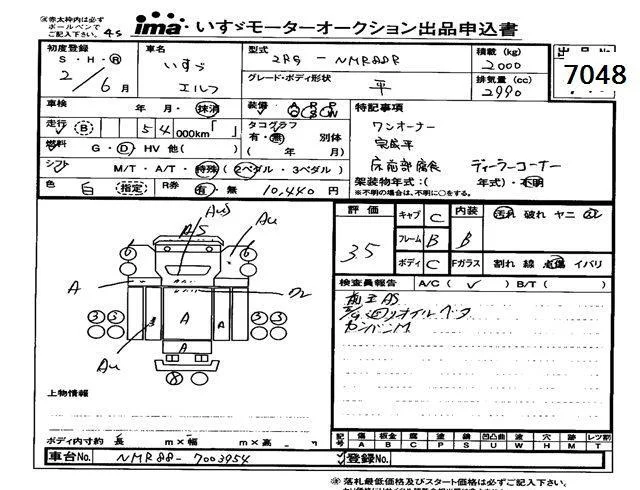 ※赤太枠内は必ず
ボールペンで
ご記入下さい。
ima いすゞモーターオークション出品申込書
初度登録 車名 型式 2RG - NMR88R 積載(kg) 出品No.
S・H・R いすゞ 2000 7048
2/6月 エルフ グレード・ボディ形状 平 排気量(cc) 2990
車検 年・月・抹消 装備 特記事項
走行 B 54 000km タコグラフ ワンオーナー
有・無 別体
燃料 G・D・HV 他( ) ( 年 月)
床前部腐食 ディーラーコーナー
シフト M/T・A/T・特殊 (2ペダル・3ペダル) 架装物年式:( 年式)・不明
※不明の場合は、不明に○をする。
色 白 (指定) R券 有・無 10,440 円
評価 キャブ C 内装 汚れ 破れ ヤニ
3.5 フレーム B B
ボディ C Fガラス 割れ 線 点傷 イバリ
検査員報告 A/C( ✓ ) B/T( )
A/S
Au
A
A
A
Au
6 6
3 3 3 3
8
上物情報
ボディ内寸約 長 m×幅 m×高 m
記号 傷 板金 腐 塗 錆 凹凸曲 波 穴 跡 レンズ割
A B C P S U W H M T
車台No. NMR88-7003954 登録No.
※落札最低価格及びスタート価格は必ずご記入下さい。